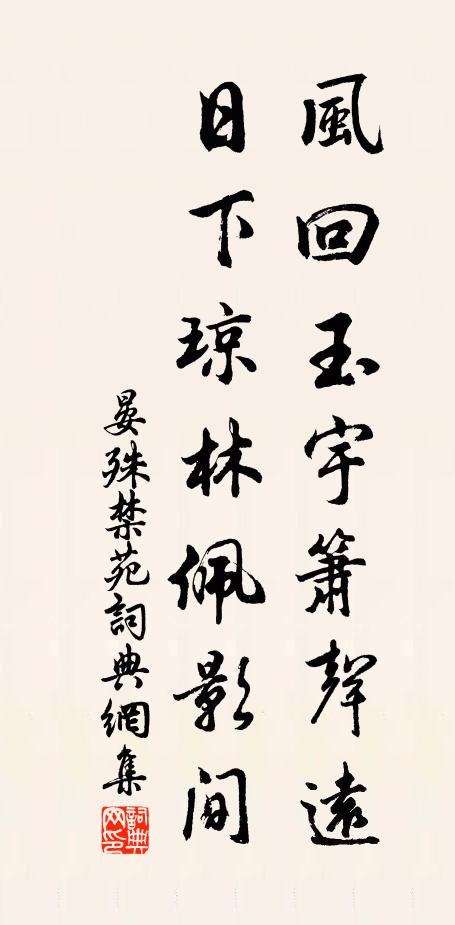 風回玉宇簫聲遠
日下琼林佩影间
晏殊禁苑詞典網集
詞典网印